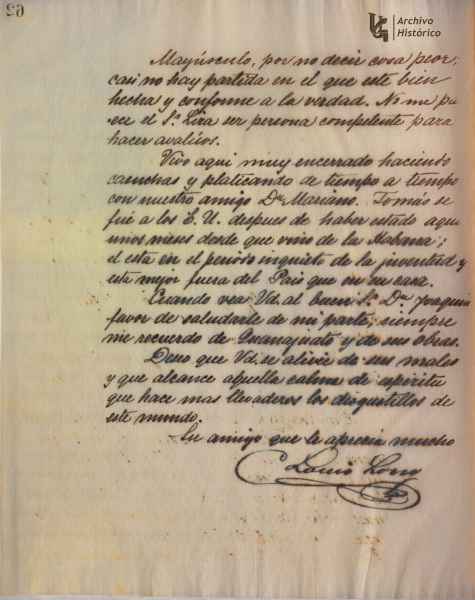 62
UG Archivo
Histórico
Mayúsculo, por no decir cosa peor,
casi no hay partida en el que esté bien
hecha y conforme a la verdad. No me pa
rece el Sr. Lira ser persona competente para
hacer avalúos.
Vivo aqui muy encerrado haciendo
canchas y platicando de tiempo a tiempo
con nuestro amigo Dn. Mariano. Tomás se
fué a los E. U. despues de haber estado aqui
unos meses desde que vino de la Habana;
el está en el periodo inquieto de la juventud y
esta mejor fuera del Pais que en su casa.
Cuando vea Vd. al buen Sr. Dn. Joaquin
favor de saludarle de mi parte; siempre
me recuerdo de Guanajuato y de sus obras.
Deseo que Vd. se alivie de sus males
y que alcance aquella calma de espiritu
que hace mas llevaderos los disgustillos de
este mundo.
Su amigo que le aprecia mucho
Louis Long